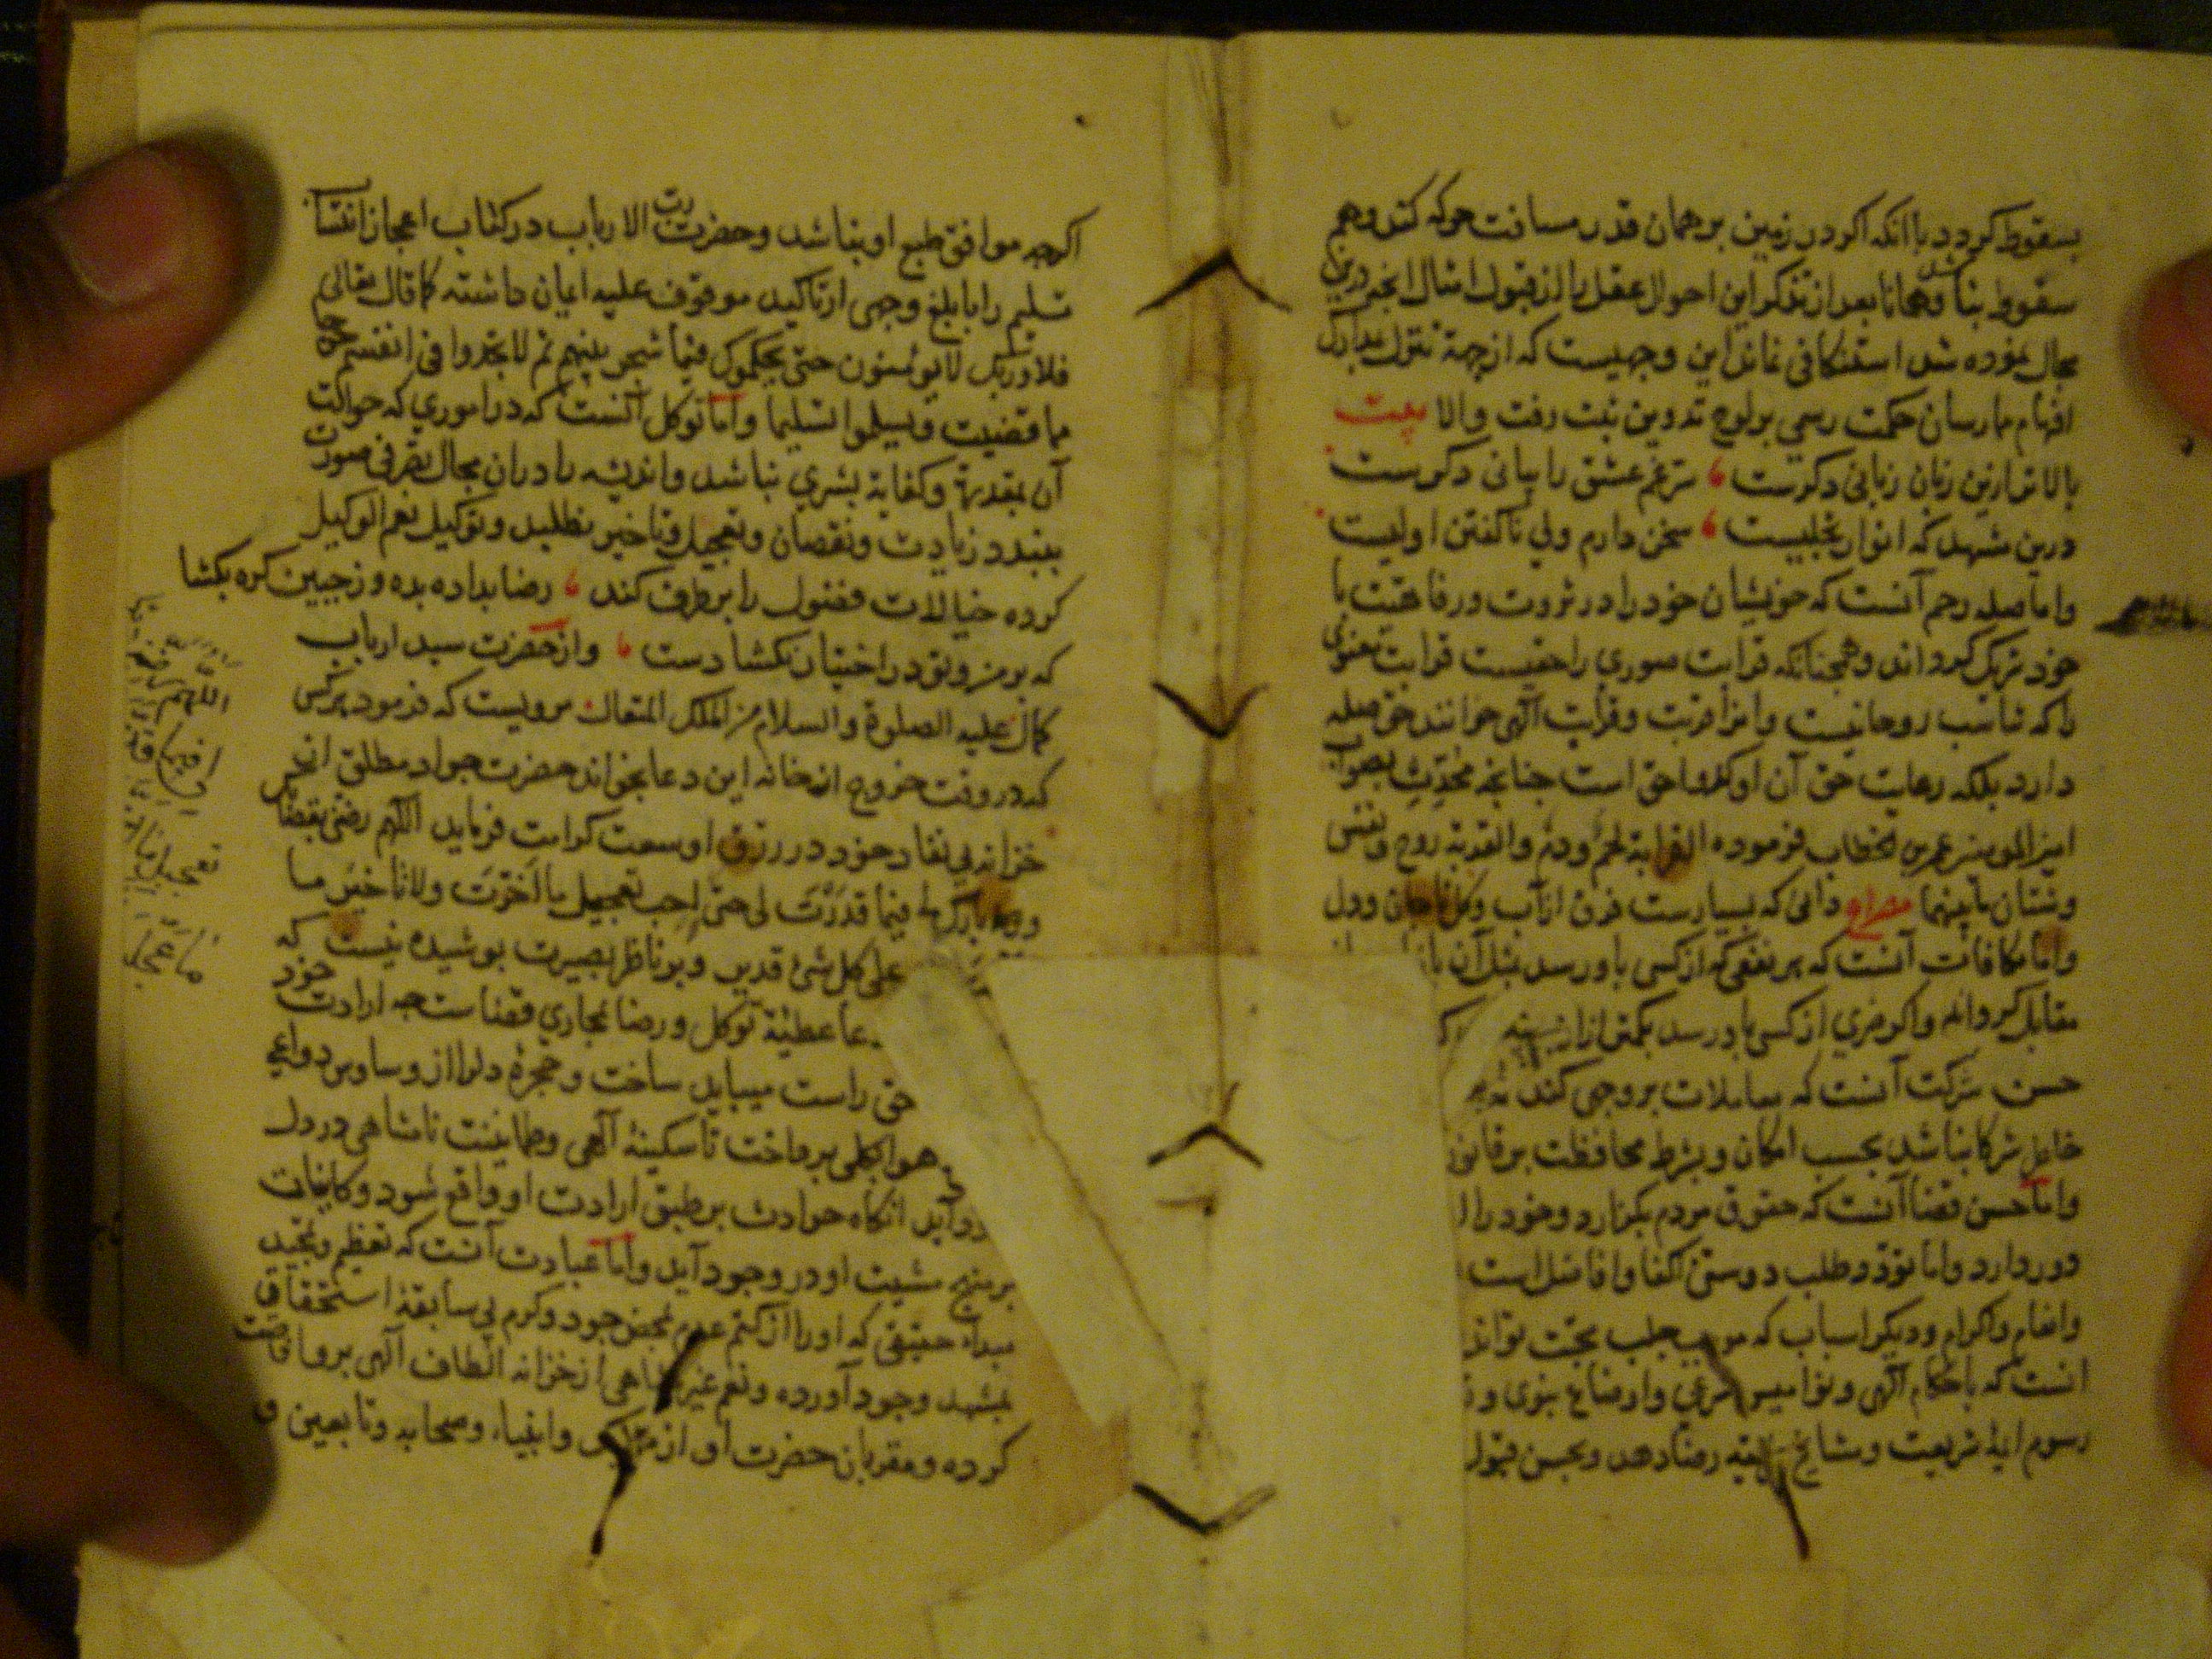 بسقوط کردد با انکه اکر در زمین بر همان قدر مسافت حرکه کند وهم
سقوط بناشد وهمانا بعد از تذکر این احوال عقل را از قبول امثال این درین
مجال نموده شد استنکافی نماند این وجهیست که از جهة تنزل بمدارک
افهام ممارسان حکمت رسمی بر لوح تدوین ثبت رفت والا بیت
بالاتر ازین زبان زبانی دکرست ، سر غم عشق را بیانی دکرست
درین مشهد که انوار تجلیست ، سخن دارم ولی ناکفتن اولیست
واما صله رحم آنست که خویشان خود را در ثروت ورفاهیت با
خود شریک کرداند وهمچنانکه قرابت صوری را حقیست قرابت معنوی
را که تناسب روحانیست وانرا قربت وقرابت آلهی خوانند حق صله
دارد بلکه رعایت حق آن اوکد واحق است جنانجه محدث بصواب
امیر المومنین عمر بن الخطاب فرموده القرابة لحم ودم والقربة روح ونفس
وشتان ما بینهما مصراع دانی که بسیارست فرق از آب وکل تا جان ودل
واما مکافات آنست که هر نفعی که از کسی باو رسد بمثل آن یا
مقابل کرداند واکر ضرری از کسی باو رسد بکمتر از ان
حسن شرکت آنست که معاملات بر وجهی کند که
خاطر شرکا نباشد بحسب امکان وبشرط محافظت بر قانون
واما حسن قضا آنست که حقوق مردم بکزارد وخود را از
دور دارد واما تودد طلب دوستی اکفا وافاضل است
وانعام واکرام ودیکر اسباب که موجب جلب محبت تواند
انست که باحکام آلهی ونوامیس شرعی واوضاع نبوی و
رسوم ایمهٔ شریعت ومشایخ طریقه رضا دهد وبحسن قبول
اکرجه موافق طبع او بناشد وحضرت رب الارباب در کتاب اعجاز انتساب
تسلیم را بابلغ وجهی از تاکید موقوف علیه ایمان داشته کما قال تعالی
فلا وربک لا یؤمنون حتی یحکموک فیما شجر بینهم ثم لا یجدوا فی انفسهم حرجا
مما قضیت ویسلموا تسلیما واما توکل آنست که در اموری که حوالت
آن بمقدرة وکفایة بشری نباشد واندیشه را دران مجال تصرفی صورت
نبندد زیادت ونقصان وتعجیل وتاخیر نطلبد وتوکیل نعم الوکیل
کرده خیالات فضول را بر طرف کند ، رضا بداده بده وز جبین کره بکشا
که بر من وتو در اختیار نکشادست ، واز حضرت سید ارباب
کمال علیه الصلوة والسلام من الملک المتعال مرویست که فرمود هر کس
که در وقت خروج از خانه این دعا بخواند حضرت جواد مطلق از
خزانه بی نفاد خود در رزق او وسعت کرامت فرماید اللهم رضنی بقضائک
وبارک لی فیما قدرت لی حتی لا احب تعجیل ما اخرت ولا تاخیر ما
علی کل شئ قدیر وبر ناظر بصیرت بوشیده نیست که
دعا عطیة توکل ورضا بمجاری قضاست جه ارادت خود
حق راست میباید ساخت وحجرهٔ دل را از وساوس دواعی
هوا بکلی برداخت تا سکینهٔ آلهی وطمانینت نامتناهی در دل
در آید انکاه حوادث بر طبق ارادت او واقع شود وکاینات
بر نهج مشیت او در وجود آید واما عبادت آنست که تعظیم وتمجید
مبداء حقیقی که او را از کتم عدم بمحض جود وکرم بی سابقهٔ استحقاق
بمشهد وجود آورده ونعم غیر متناهی از خزانه الطاف آلهی برو افاضت
کرده ومقربان حضرت او از ملایکه وانبیاء وصحابه وتابعین و
اللهم